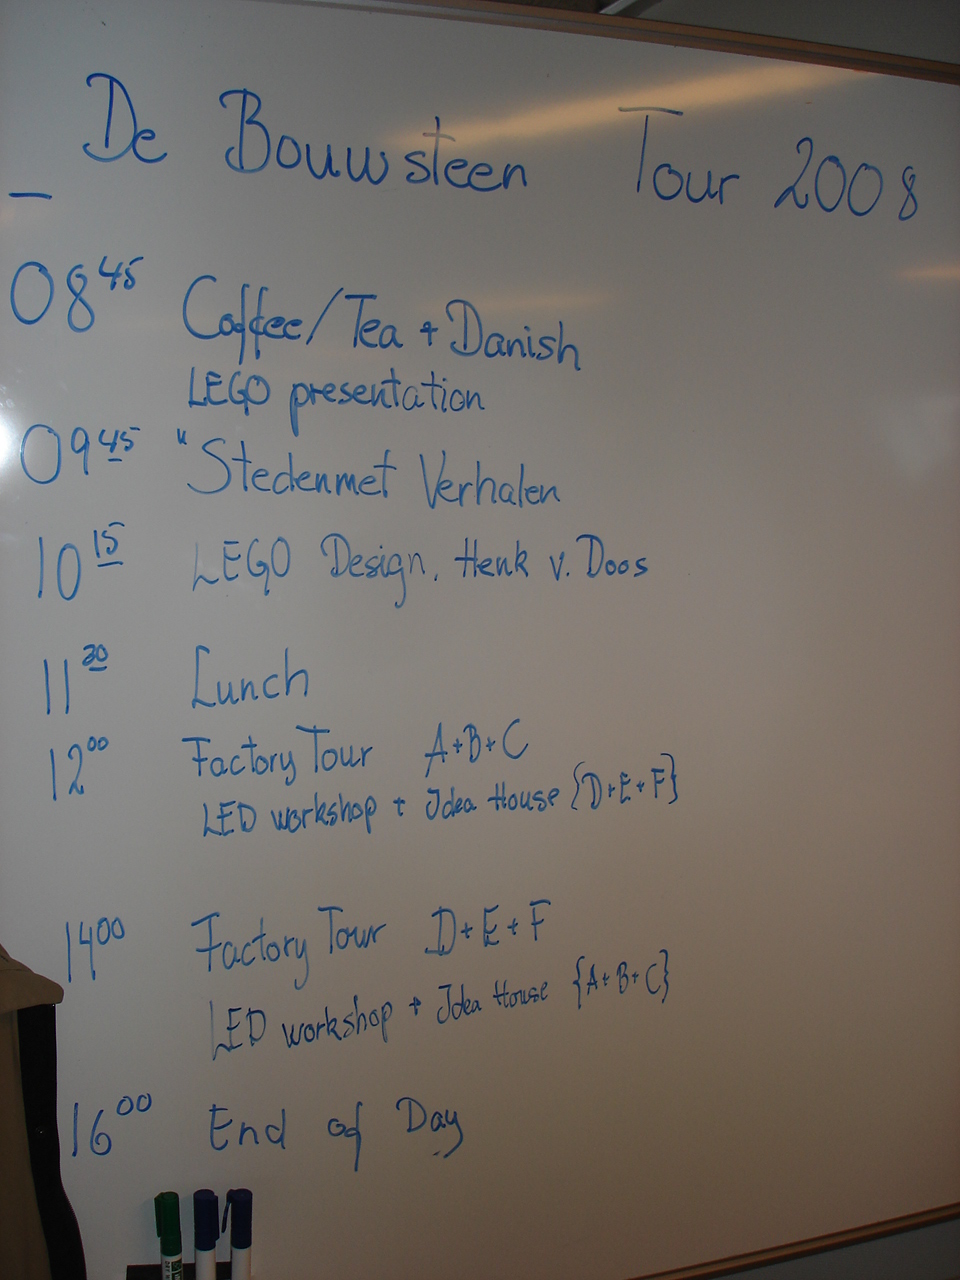 De Bouwsteen Tour 2008
08 45 Coffee/Tea + Danish
LEGO presentation
09 45 "Stedenmet Verhalen
10 15 LEGO Design, Henk v. Doos
11 30 Lunch
12 00 Factory Tour A+B+C
LED workshop + Idea House {D+E+F}
14 00 Factory Tour D+E+F
LED workshop + Idea House {A+B+C}
16 00 End of Day